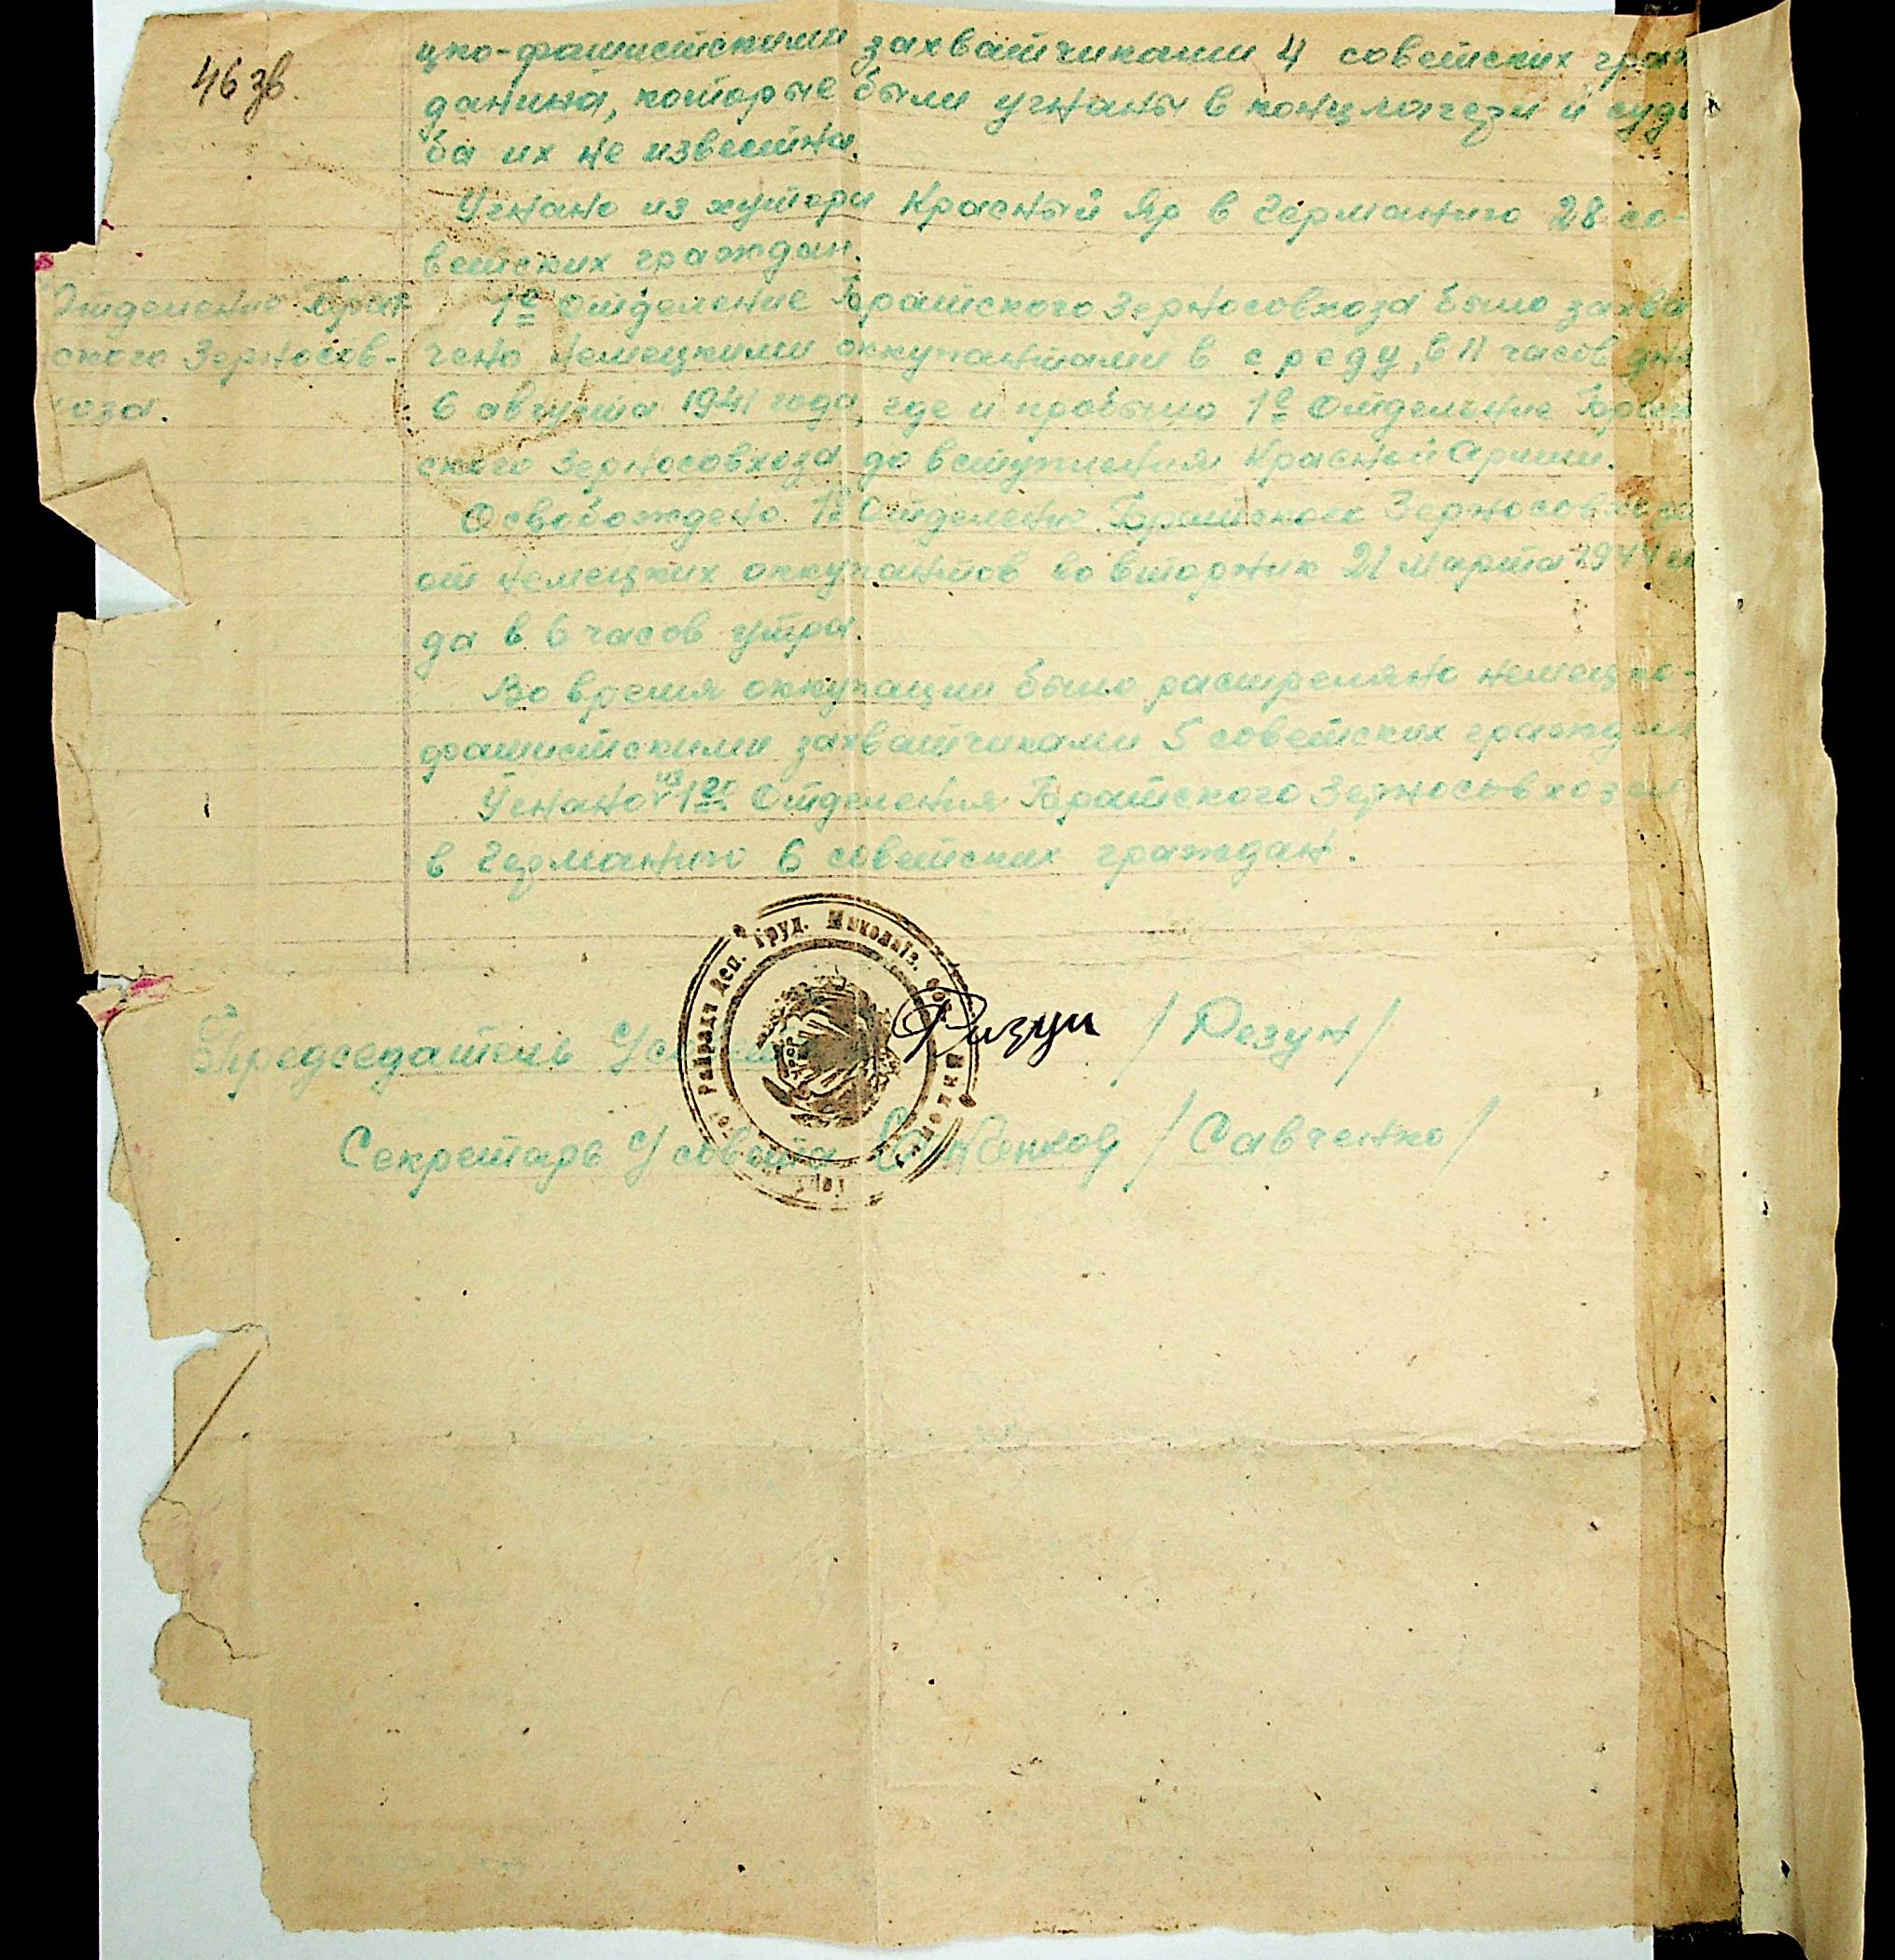 46 зв.
цко-фашистскими захватчиками 4 советских граж
данина, которые были угнаны в концлагери и судь
ба их не известна.
Угнано из хутора Красный Яр в Германию 28 со-
ветских граждан.
Отделение Брат
ского Зерносов-
хоза.
1е Отделение Братского Зерносовхоза было захва
чено немецкими оккупантами в среду, в 11 часов дня
6 августа 1941 года, где и пробыло 1е Отделение Брат
ского Зерносовхоза до вступления Красной Армии.
Освобождено 1е Отделение Братского Зерносовхоза
от немецких оккупантов во вторник 21 марта 1944 го
да в 6 часов утра.
Во время оккупации было расстреляно немецко-
фашистскими захватчиками 5 советских граждан
Угнано из 1го Отделения Братского Зерносовхоза
в Германию 6 советских граждан.
Председатель /Резун/
Секретарь Усовета /Савченко/
Райради Деп. Труд. Миколаїв.